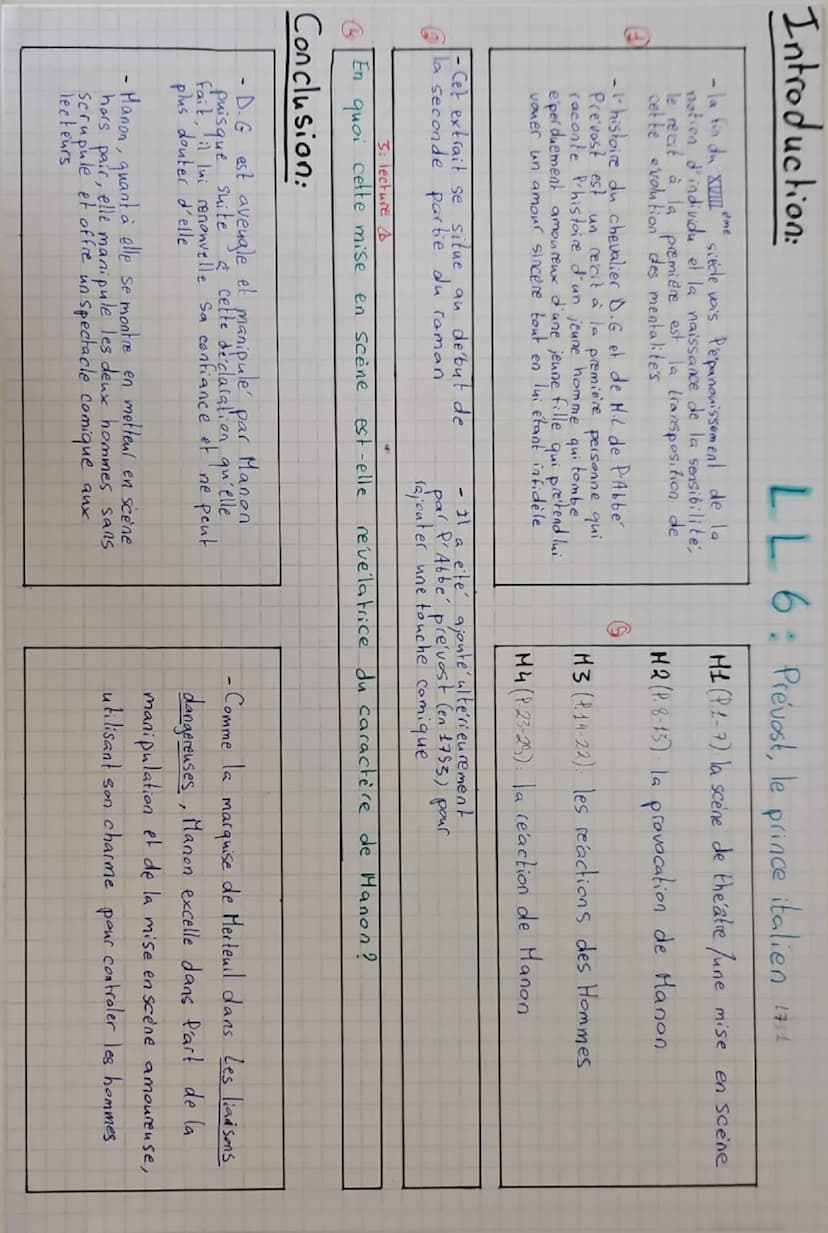 LL6: Prévost, le prince italien 1731
Introduction:
①
- la fin du XVIII ème siècle vois l'épanouissement de la
notion d'individu et la naissance de la sensibilité;
le récit à la première est la transposition de
cette évolution des mentalités
- l'histoire du chevalier D.G et de M.L de l'Abbé
Prévost est un récit à la première personne qui
raconte l'histoire d'un jeune homme qui tombe
éperduement amoureux d'une jeune fille qui prétend lui
vouer un amour sincère tout en lui étant infidèle
⑤
M1 (P.1-7) la scène de théâtre/une mise en scène
M2 (P.8-13): la provocation de Manon
M3 (P.14-22): les réactions des Hommes
M4 (P.23-29): la réaction de Manon
②
- Cet extrait se situe au début de
la seconde partie du roman
- Il a été ajouté ultérieurement
par l'Abbé prévost (en 1753) pour
rajouter une touche comique
3: lecture
④
En quoi cette mise en scène est-elle révélatrice du caractère de Manon?
Conclusion:
- D.G est aveugle et manipulé par Manon
puisque suite à cette déclaration qu'elle
fait, il lui renouvelle sa confiance et ne peut
plus douter d'elle
- Manon, quant à elle se montre en metteur en scène
hors pair, elle manipule les deux hommes sans
scrupule et offre un spectacle comique aux
lecteurs
- Comme la marquise de Merteuil dans Les liaisons
dangereuses, Manon excelle dans l'art de la
manipulation et de la mise en scène amoureuse,
utilisant son charme pour contrôler les hommes